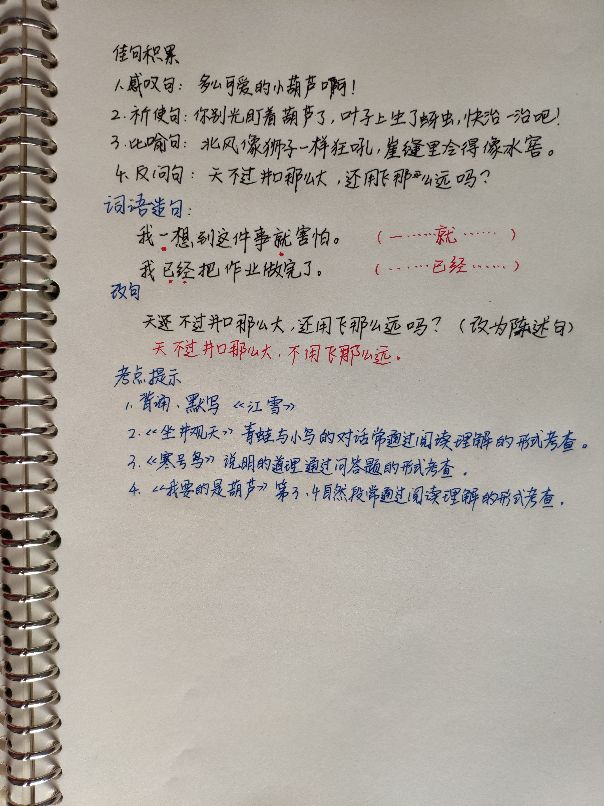 佳句积累
1.感叹句：多么可爱的小葫芦啊！
2.祈使句：你别光盯着葫芦了，叶子上生了蚜虫，快治一治吧！
3.比喻句：北风像狮子一样狂吼，崖缝里冷得像冰窖。
4.反问句：天不过井口那么大，还用飞那么远吗？
词语造句：
我一想到这件事就害怕。（一……就……）
我已经把作业做完了。（……已经……）
改句
天还不过井口那么大，还用飞那么远吗？（改为陈述句）
天不过井口那么大，不用飞那么远。
考点提示
1.背诵、默写《江雪》
2.《坐井观天》青蛙与小鸟的对话常通过阅读理解的形式考查。
3.《寒号鸟》说明的道理通过问答题的形式考查。
4.《我要的是葫芦》第3、4自然段常通过阅读理解的形式考查。